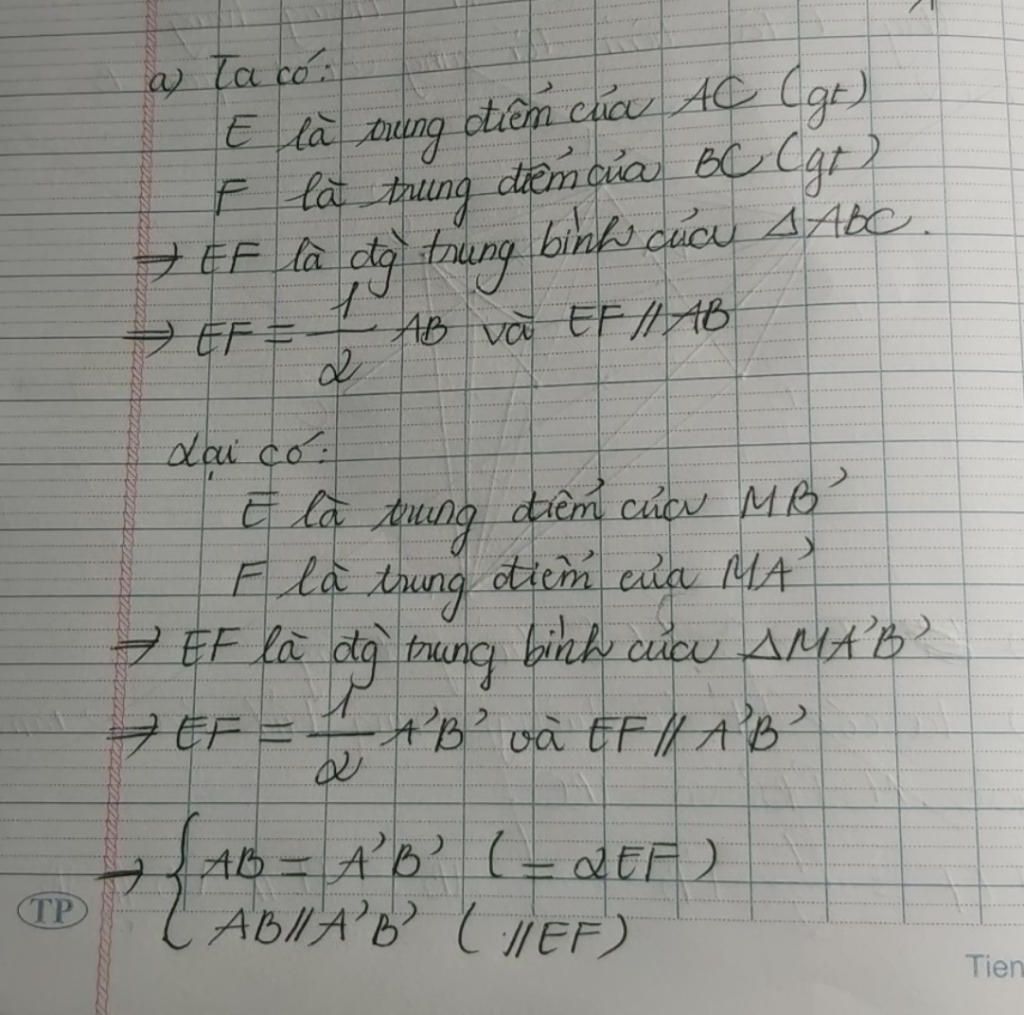 a) Ta có:
E là trung điểm của AC (gt)
F là trung điểm của BC (gt)
⇒ EF là đg̀ trung bình của ΔABC.
⇒ EF = 1/2 AB và EF // AB
Lại có:
E là trung điểm của MB'
F là trung điểm của MA'
⇒ EF là đg̀ trung bình của ΔMA'B'
⇒ EF = 1/2 A'B' và EF // A'B'
→ { AB = A'B' (= 2EF)
AB // A'B' (//EF)
TP
Tien